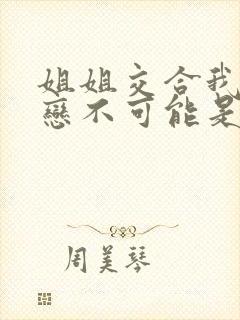 姐姐交合我
戀不可能是
周美琴